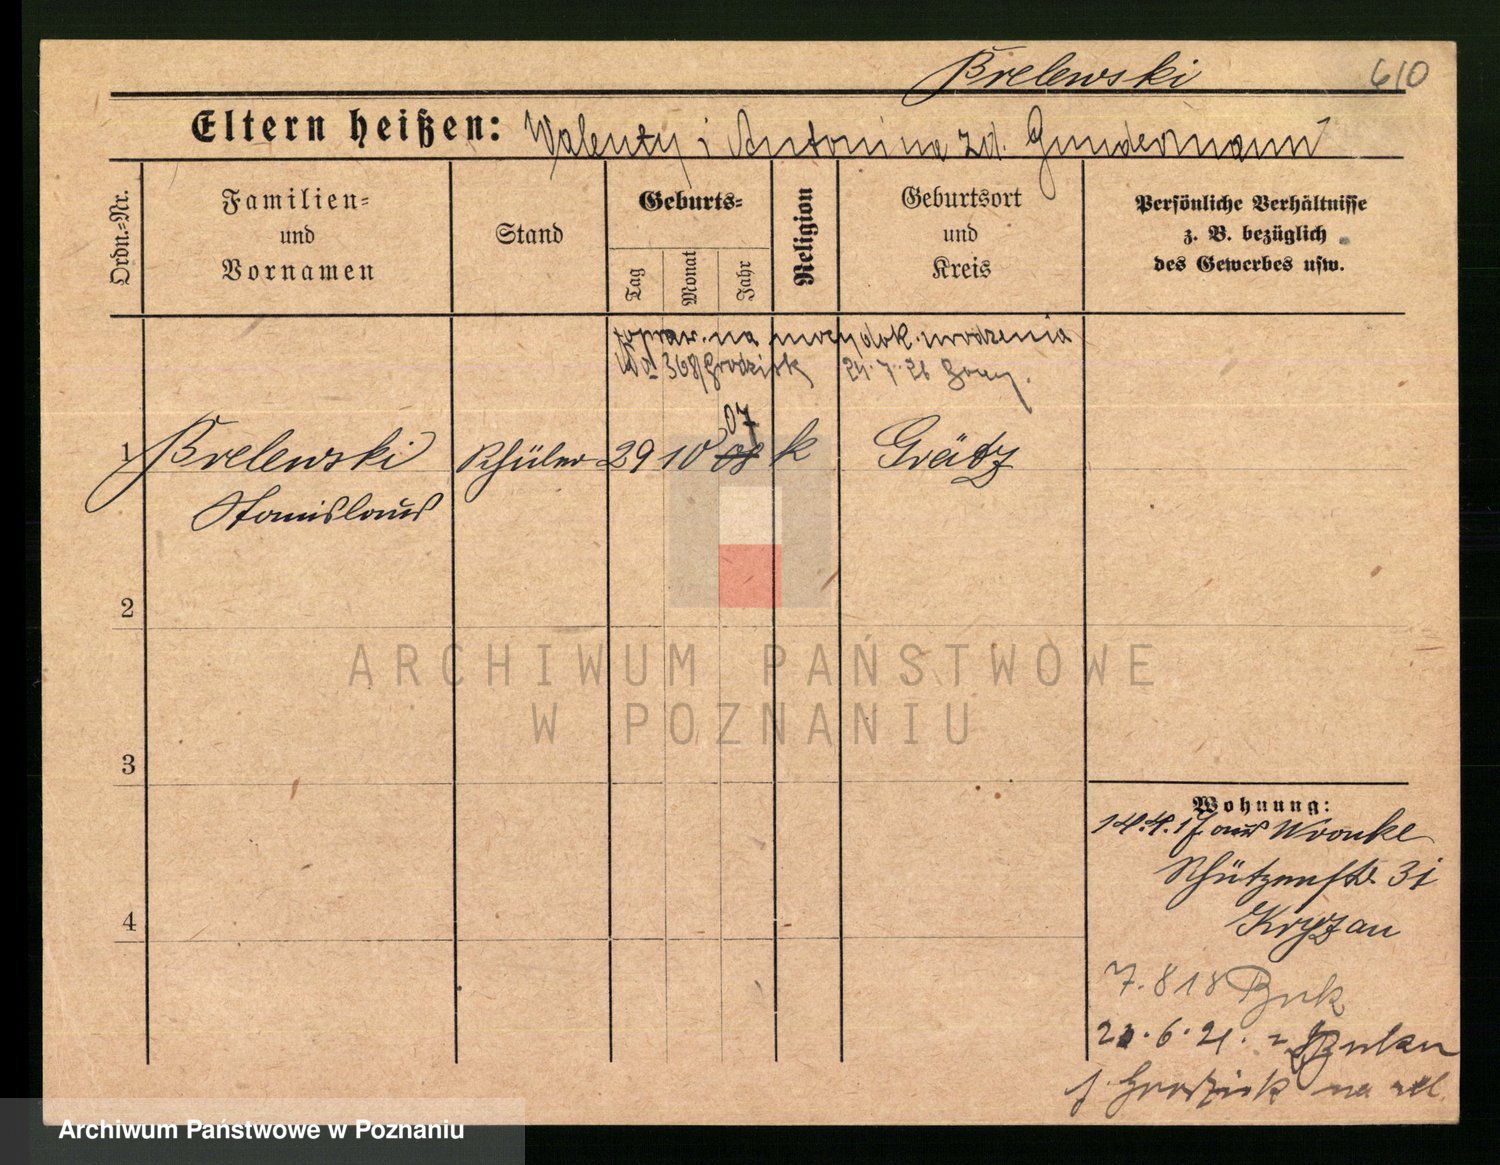 Brelewski 610
Eltern heißen: Walenty i Antonina zd. Gundermann
Ordn.=Nr.
Familien=
und
Vornamen
Stand
Geburts=
Tag
Monat
Jahr
Religion
Geburtsort
und
Kreis
Persönliche Verhältnisse
z. B. bezüglich
des Gewerbes usw.
popraw. na mocy dok. urodzenia
368/Grodzisk 24.7.26
07
1 Brelewski Schüler 29 10 08 k Grätz
Stanislaus
2
ARCHIWUM PAŃSTWOWE
W POZNANIU
3
Wohnung:
14.4.17 aus Wronke
Schützenstr. 31
Kryzan
4
7.8 18 Buk
6. 21. z Buku
Grodzisk na
Archiwum Państwowe w Poznaniu